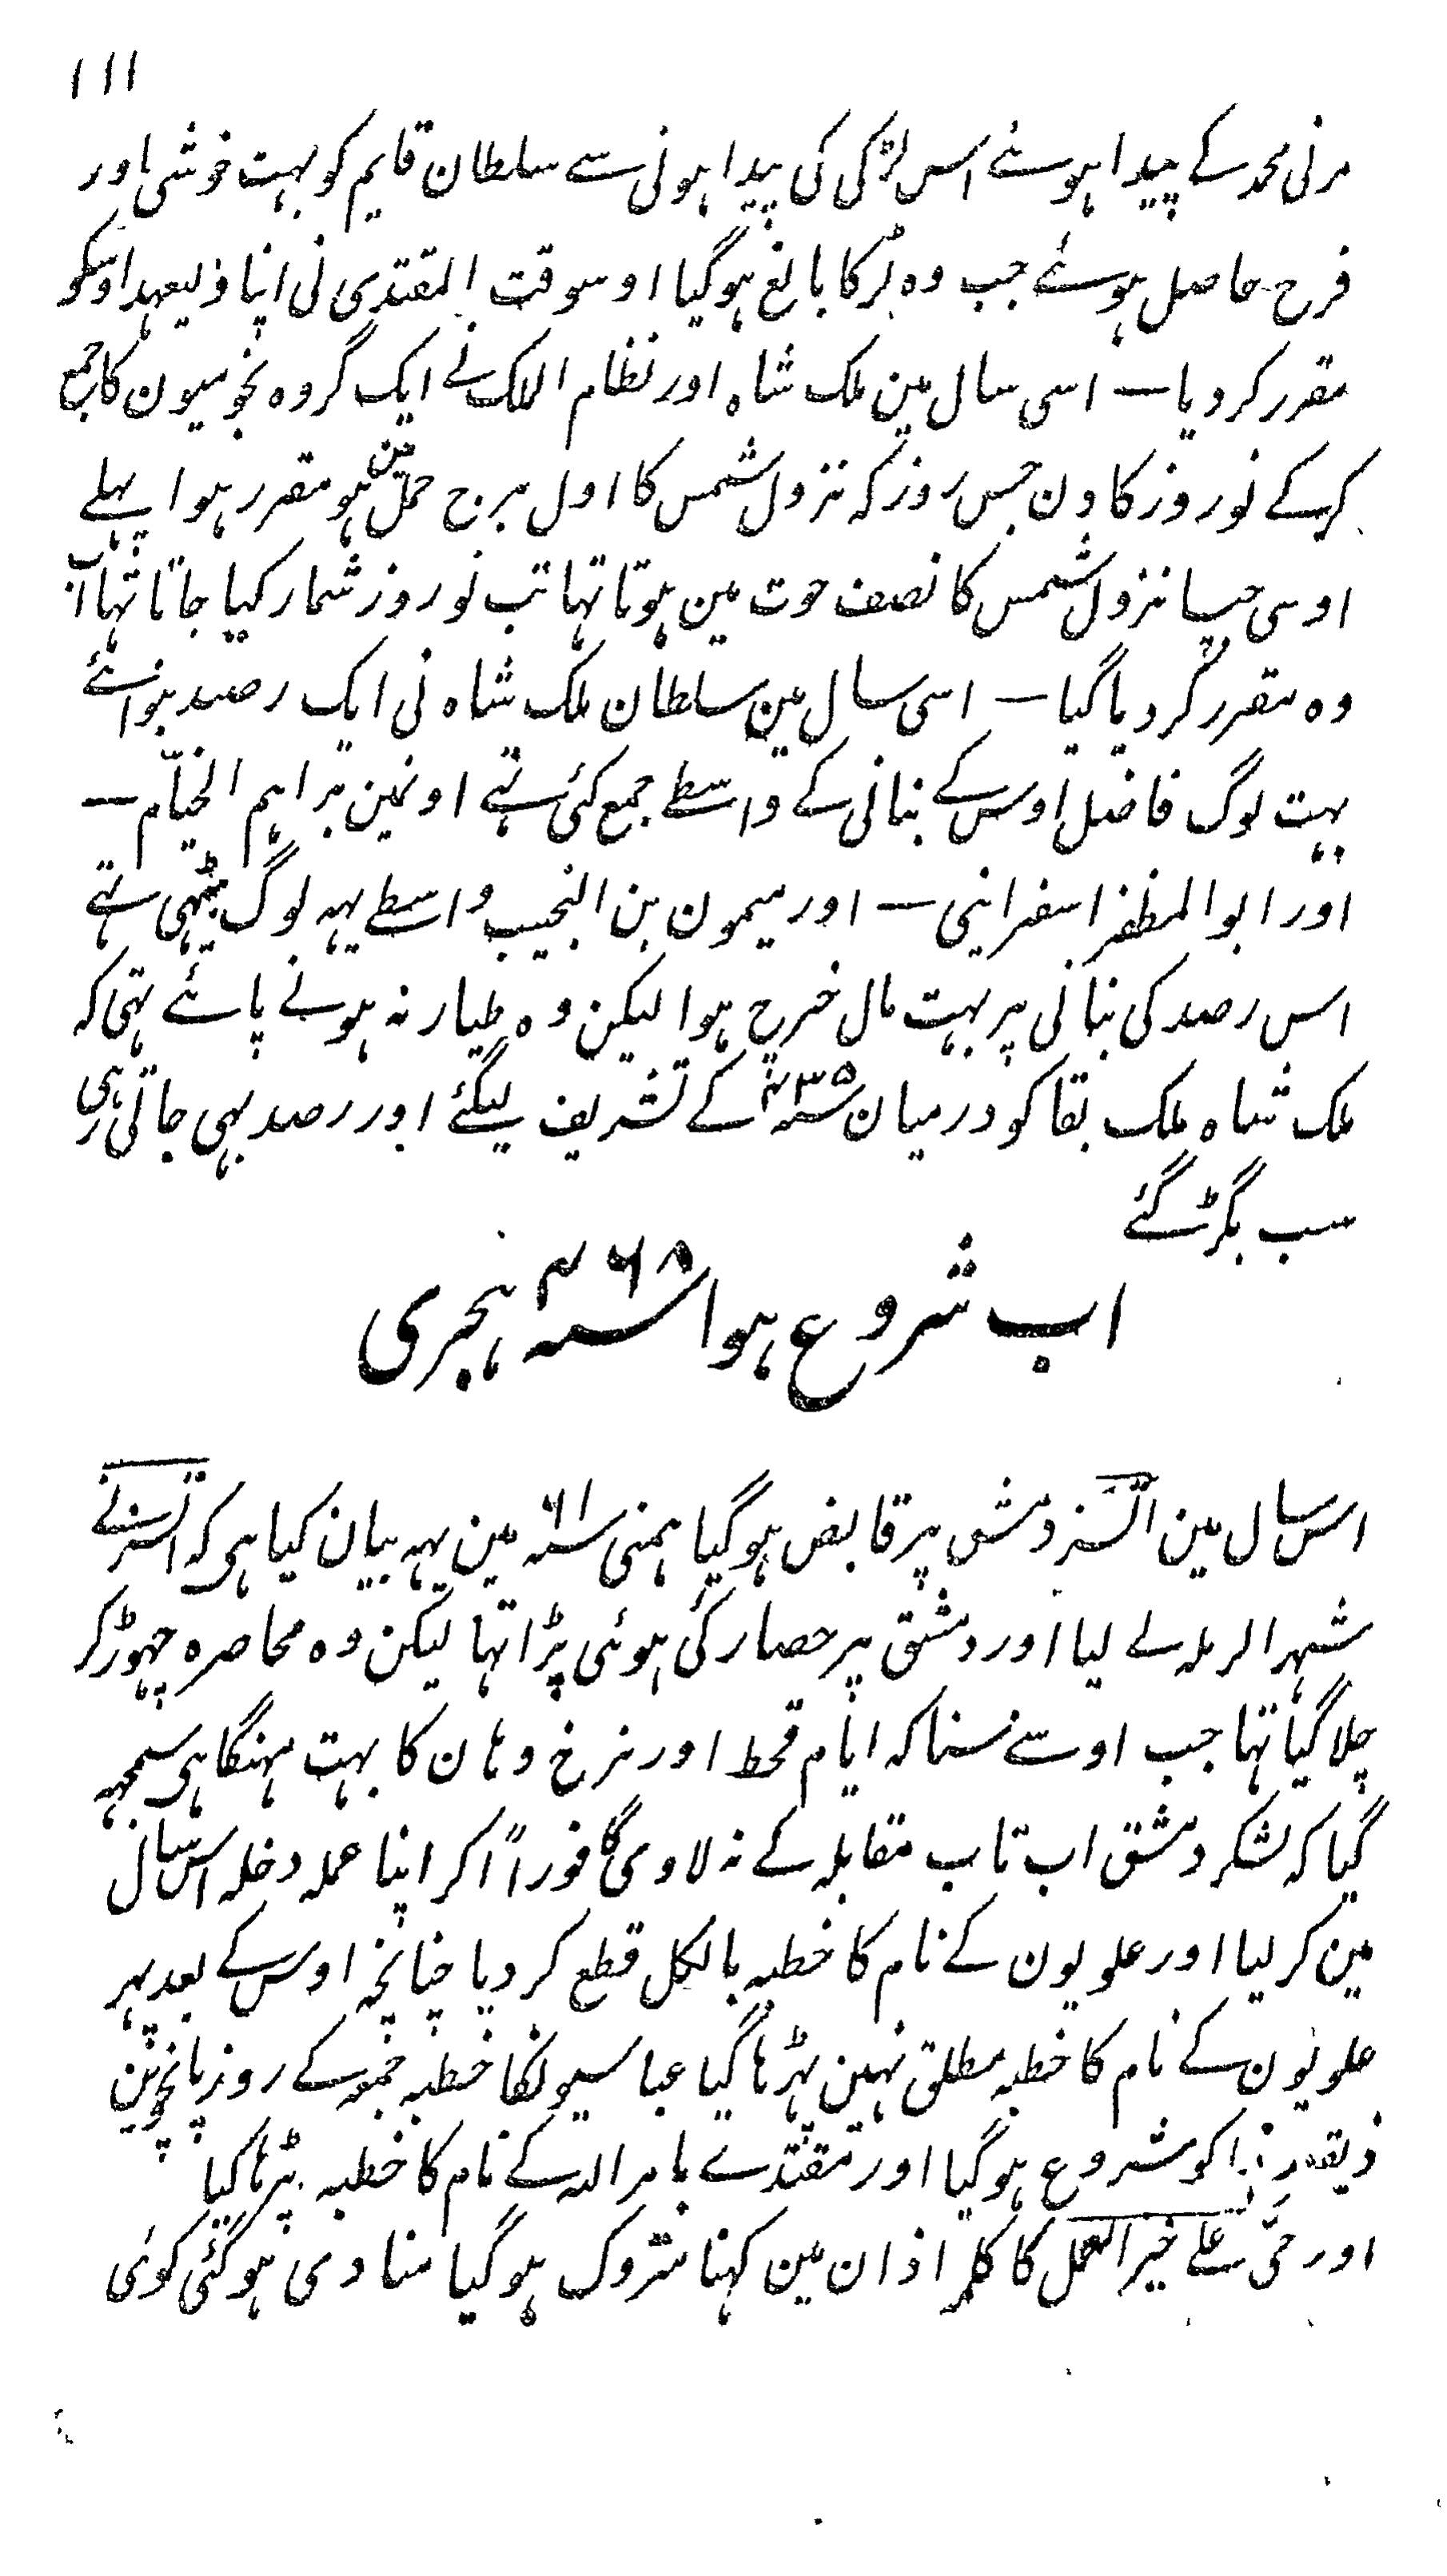 ۱۱۱
مرنی محمد کے پیدا ہوئے اس لڑکی کی پیدا ہونی سے سلطان قایم کو بہت خوشی اور
فرح حاصل ہوئے جب وہ لڑکا بالغ ہوگیا اوسوقت المقتدی نی اپنا ولیعہد اوسکو
مقرر کر دیا — اسی سال مین ملک شاہ اور نظام الملک نے ایک گروہ نجومیون کا جمع
کرکے نوروز کا دن جس روز کہ نزول شمس کا اول برج حمل مین ہو مقرر ہوا پہلے
اوسی نزول شمس کا نصف حوت مین ہوتا تہا تب نوروز شمار کیا جاتا تہا اب
وہ مقرر کر دیا گیا — اسی سال مین سلطان ملک شاہ نی ایک رصد بنوائے
بہت لوگ فاضل اوس کے بنانی کے واسطے جمع کئی تہے اونمین براہیم الخیّام —
اور ابو المظفر اسفراینی — اور میمون بن النجیب واسطے یہہ لوگ بیٹہی تہے
اس رصد کی بنانی پر بہت مال خرچ ہوا لیکن وہ طیار نہ ہونے پائے تہی کہ
ملک شاہ ملک بقا کو درمیان سنہ ۴۳۵ کے تشریف لیگئے اور رصد بہی جاتی رہی
سب بگڑ گئے
اب شروع ہوا سنہ ۴۶۸ ہجری
اس سال مین اتسز دمشق پر قابض ہوگیا ہمنی سنہ ۶۱ مین یہہ بیان کیا ہی کہ اتسز نے
شہر الرملہ لے لیا اور دمشق پر حصار کئی ہوئی پڑا تہا لیکن وہ محاصرہ چہوڑ کر
چلا گیا تہا جب اوسے سنا کہ ایام قحط اور نرخ وہان کا بہت مہنگا ہی سمجہہ
گیا کہ لشکر دمشق اب تاب مقابلہ کے نہ لاوی گا فوراً اکر اپنا عملہ دخلہ اس سال
مین کر لیا اور علویون کے نام کا خطبہ بالکل قطع کر دیا چنانچہ اوس کے بعد پہر
علویون کے نام کا خطبہ مطلق نہین پڑہا گیا عباسیونکا خطبہ جمعہ کے روز پانچوین
ذیقعدہ کو شروع ہوگیا اور مقتدے بامر اللہ کے نام کا خطبہ پڑہا گیا
اور حیَّ علے خیر العمل کا کلمہ اذان مین کہنا متروک ہوگیا منادی ہوگئی کوئی